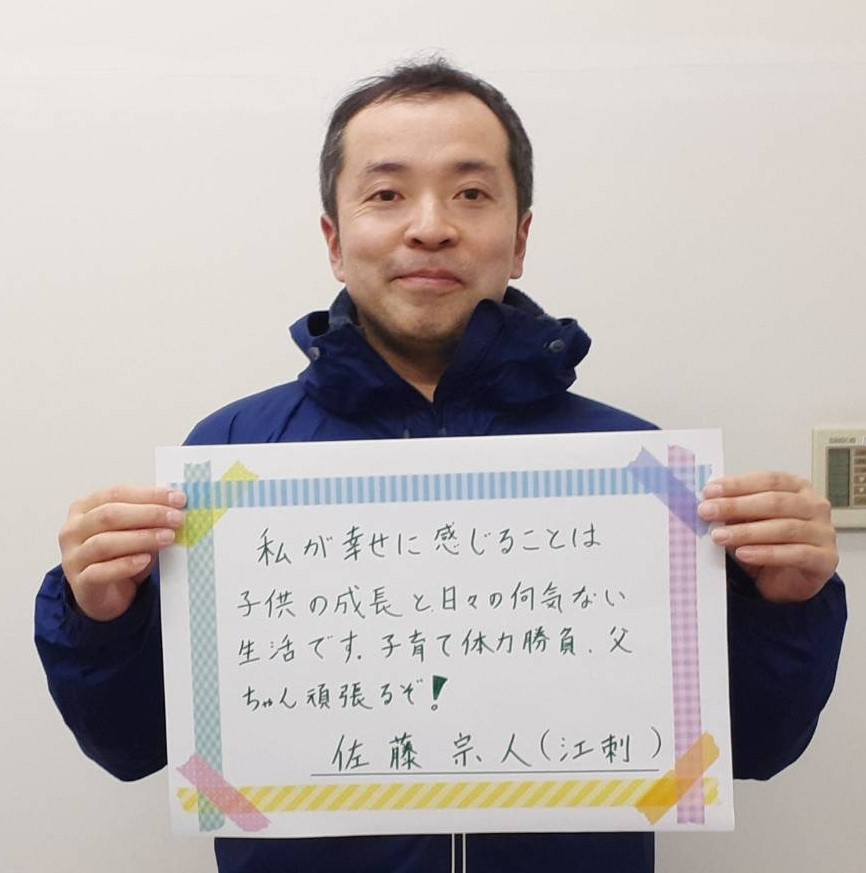 私が幸せに感じることは
子供の成長と、日々の何気ない
生活です。子育て体力勝負、父
ちゃん頑張るぞ!
佐藤 宗人(江刺)